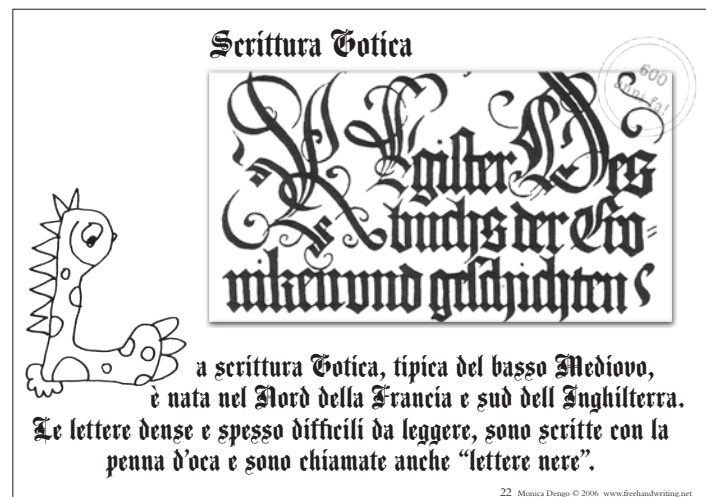 Scrittura Gotica
600
anni fa!
Register Des
buchs der Cro=
niken und geschichten
La scrittura Gotica, tipica del basso Mediovo,
è nata nel Nord della Francia e sud dell Inghilterra.
Le lettere dense e spesso difficili da leggere, sono scritte con la
penna d'oca e sono chiamate anche “lettere nere”.
22 Monica Dengo © 2006 www.freehandwriting.net